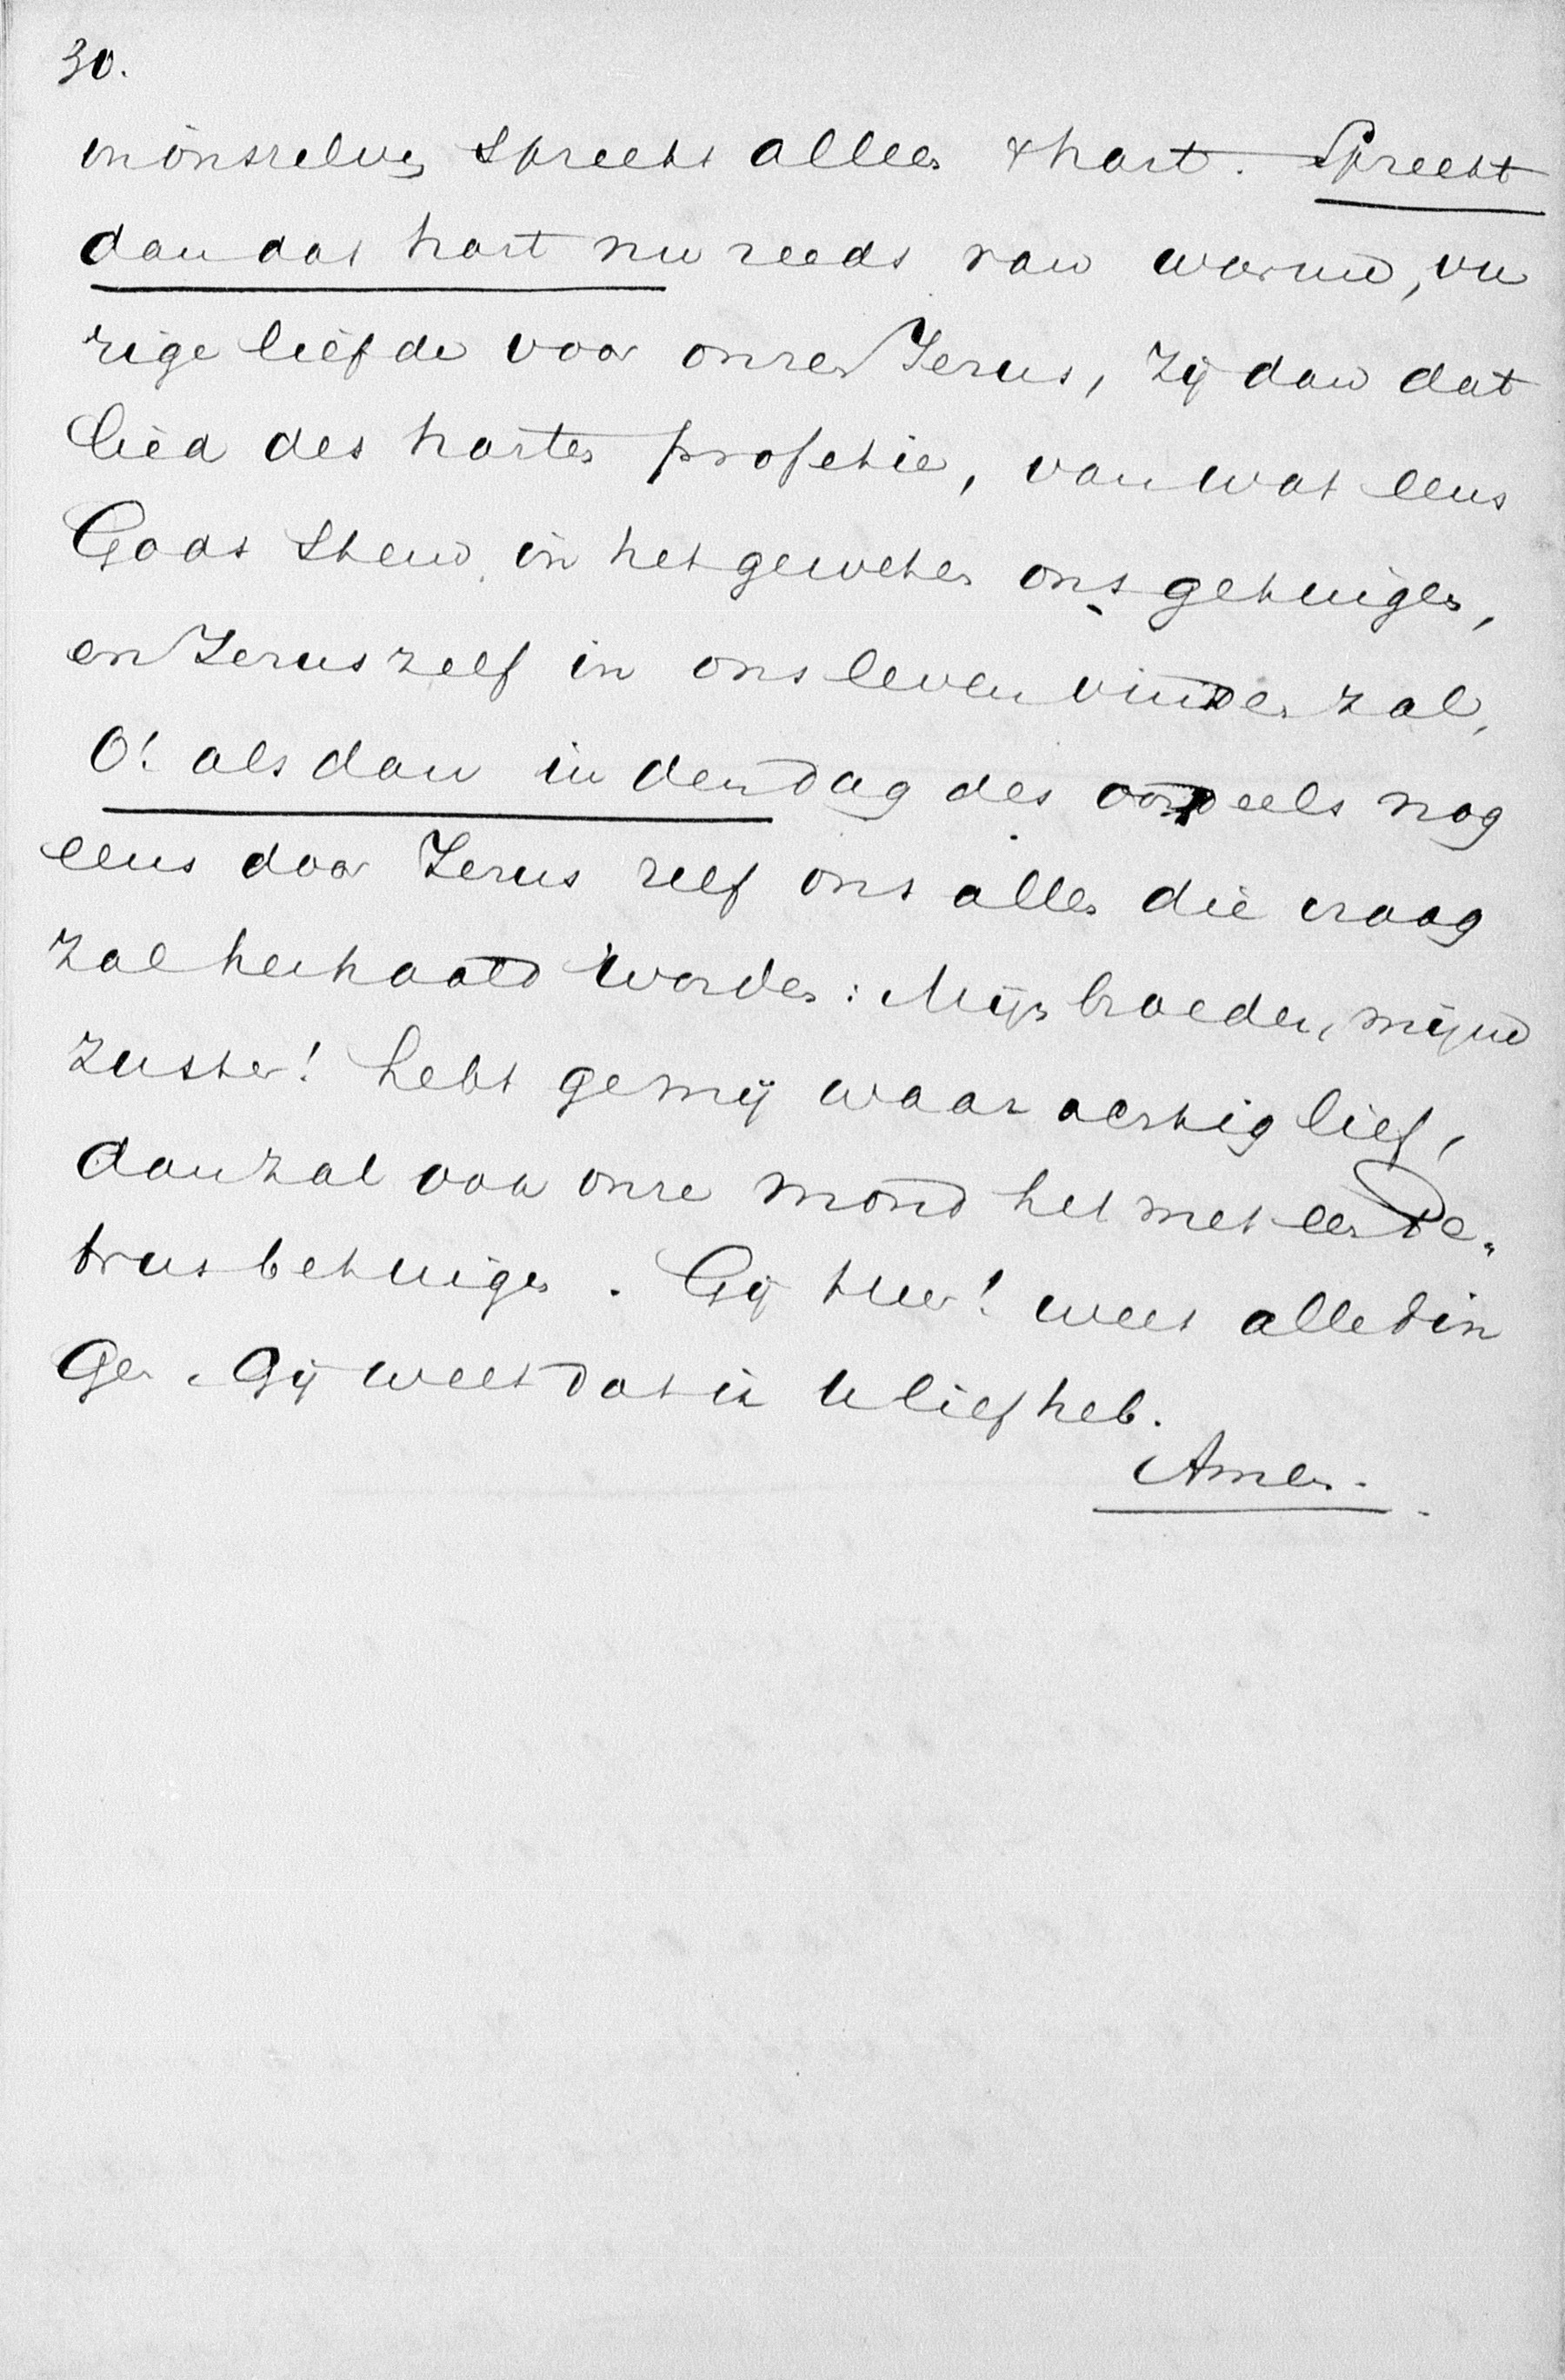 30.
in onszelven spreekt alleen 't hart. Spreekt
dan dat hart nu reeds van warme, vu
rige liefde voor onzen Jezus, Zij dan dat
lied des harten profetie, van wat eens
Gods stem in het geweten ons getuigen,
en Jezus zelf in ons leven vinden zal,
O! als dan in den dag des oordeels nog
eens door Jezus zelf ons allen die vraag
zal herhaald worden: Mijn broeder, mijne
zuster! hebt ge mij waarachtig lief,
dan zal ook onze mond het met een Pe„
trus betuigen. Gij Heer! weet alle din
Gen. Gij weet dat ik U lief heb.
Amen.